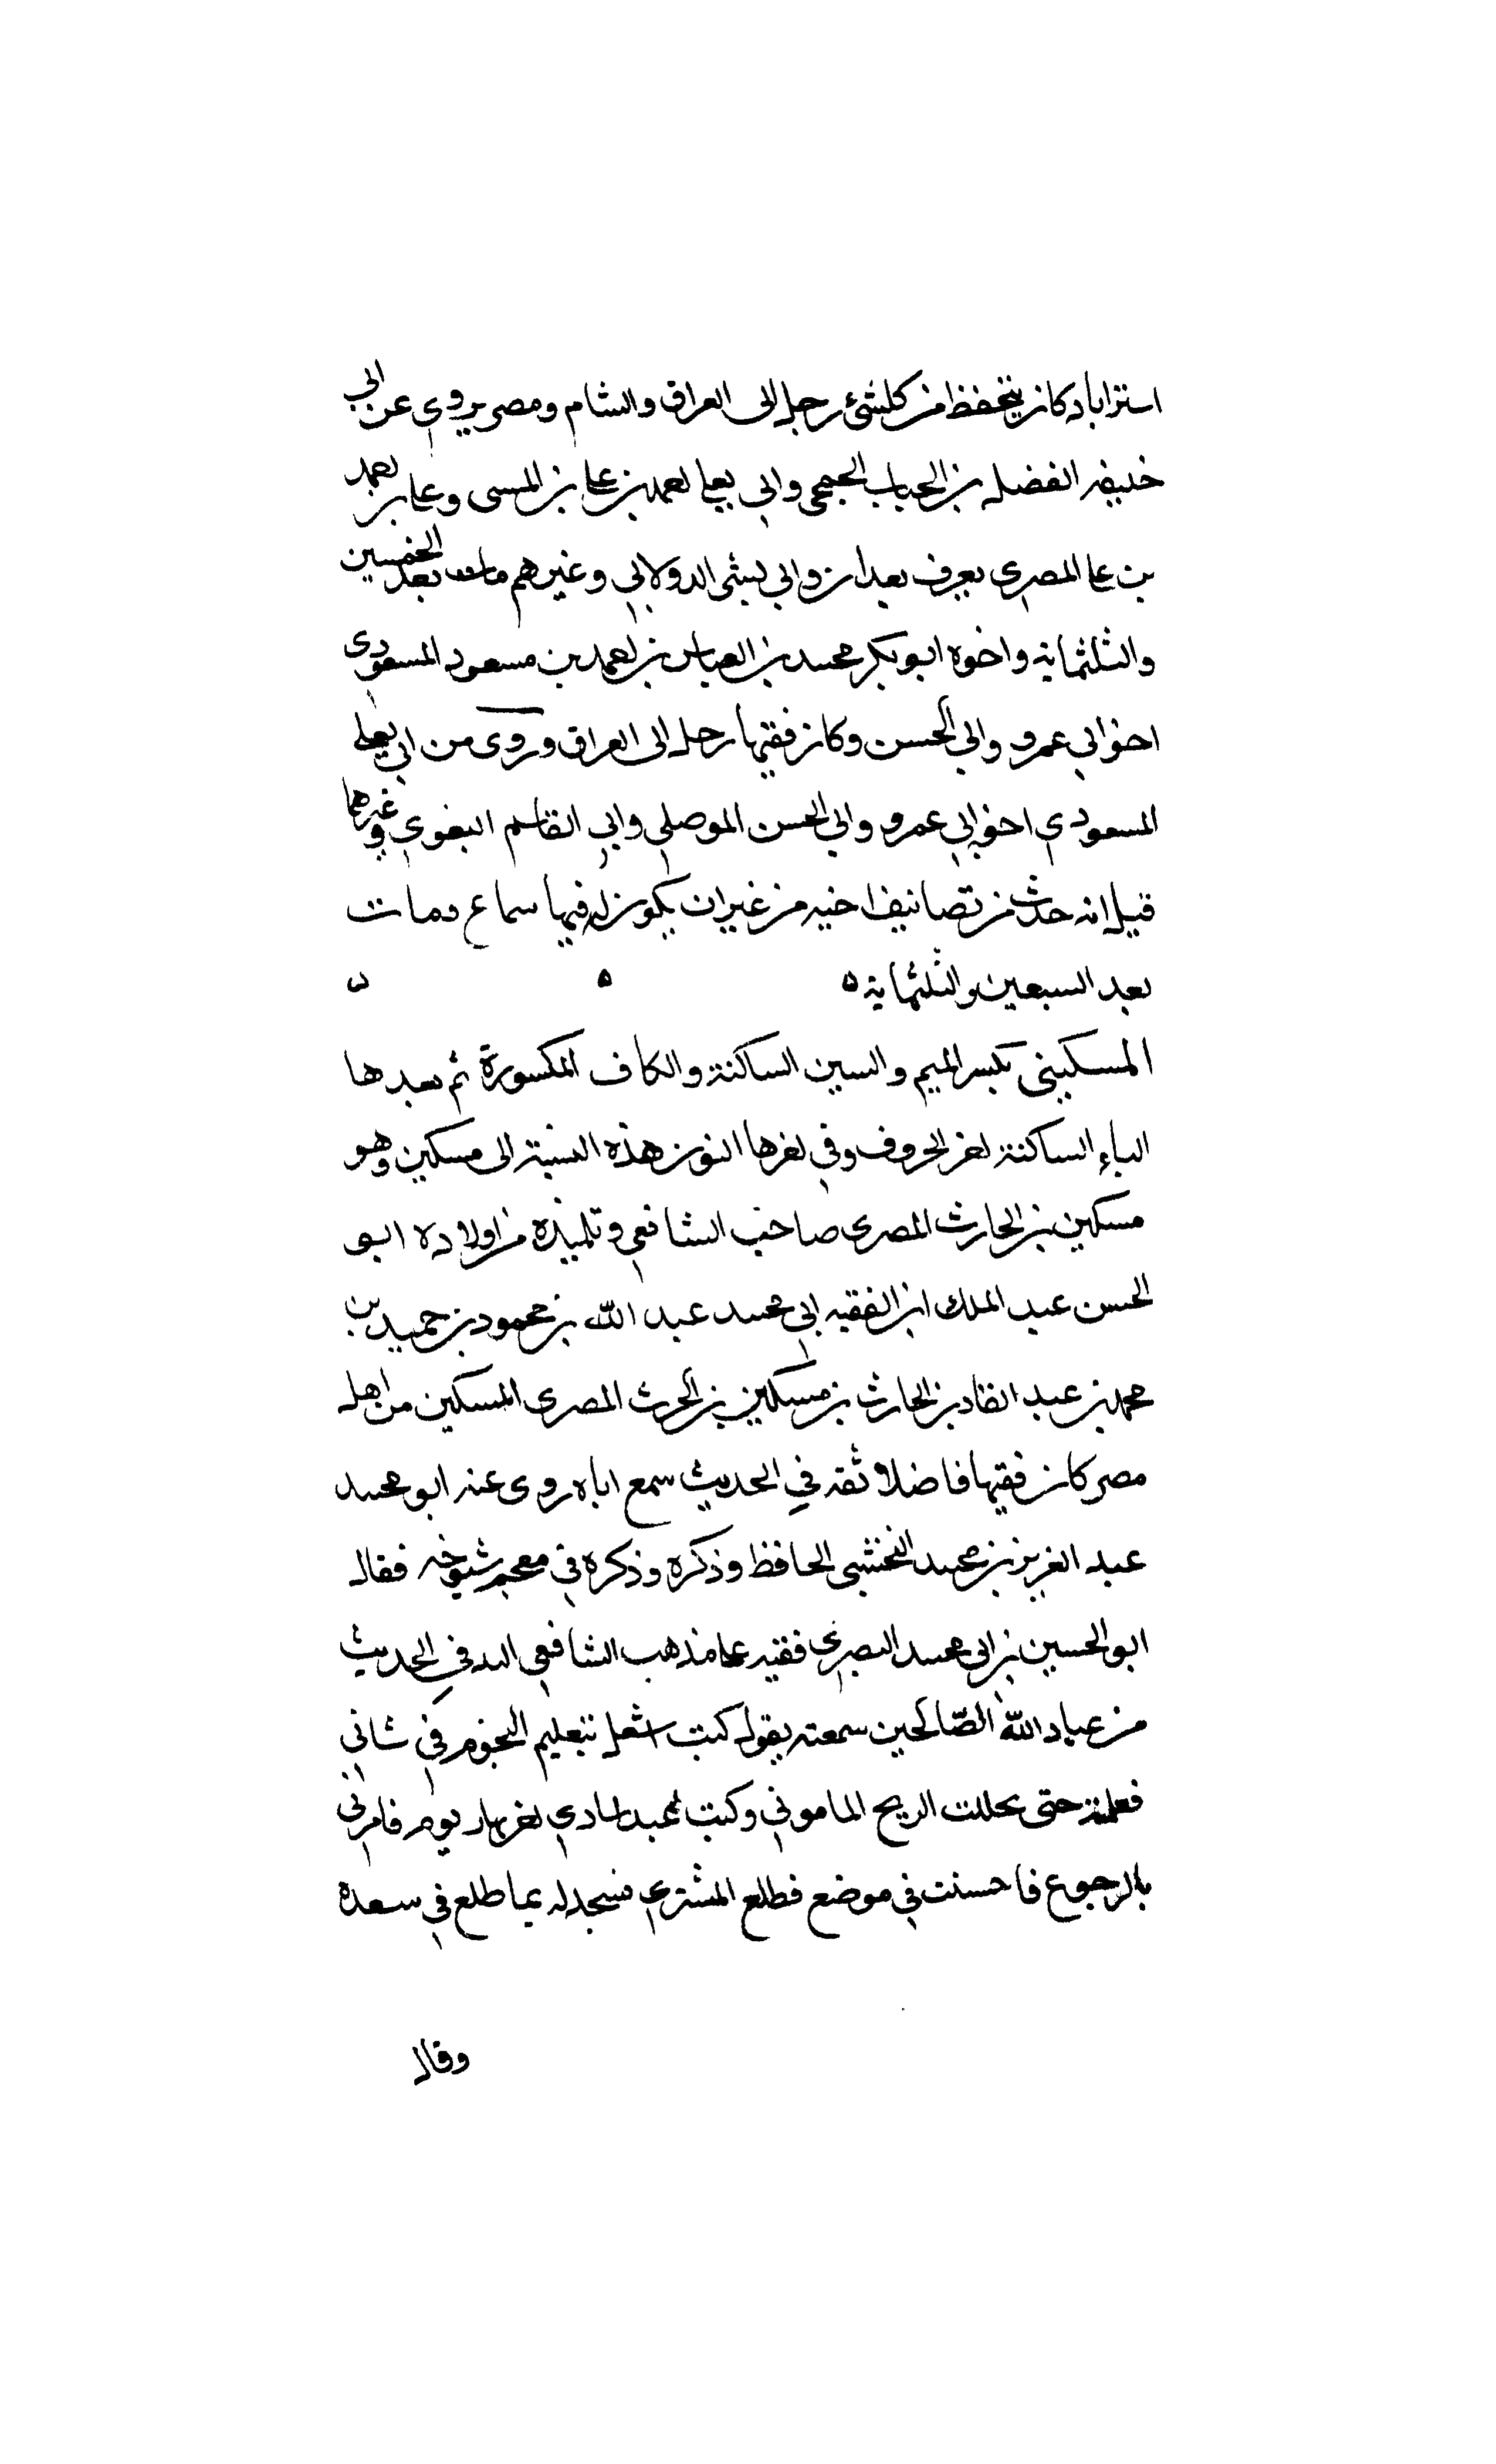 استراباد كان يتحفظ من كلشئ رحل الى العراق والشام ومصر يروي عن ابي
خليفه الفضل بن الحباب الجمحي وابي يعلى احمد بن علي بن المسى وعلي بن احمد
بن علي المصري يعرف بعدان وابي بشى الدولابي وغيرهم مات بعد الخمسين
والثلثماية واخوه ابو بكر محمد بن العباس بن احمد بن مسعود المسعودي
اخو ابي عمرو وابي الحسن وكان فقيها رحل الى العراق وروى من ابي يعلى
المسعودي اخو ابي عمرو وابي الحسن الموصلي وابي القاسم البغوي وغيرهما
قيل انه حدث من تصانيف اخيه من غير ان يكون له فيها سماع ومات
بعد السبعين والثلثماية
المسكيني بكسر الميم والسين الساكنة والكاف المكسورة ثم بعدها
الياء الساكنة اخر الحروف وفي اخرها النون هذه النسبة الى مسكين وهو
مسكين بن الحارث المصري صاحب الشافعي وتلميذه من اولاده ابو
الحسن عبد الملك ابن الفقيه ابي محمد عبد الله بن محمود بن حميد بن
محمد بن عبد القادر بن الحارث بن مسكين بن الحرث المصري المسكين من اهل
مصر كان فقيها فاضلا ثقه في الحديث سمع اباه روى عنه ابو محمد
عبد العزيز بن محمد النخشبي الحافظ وذكره وذكره في معجم شيوخه فقال
ابو الحسين بن ابي محمد البصري فقيه على مذهب الشافعي في الحديث
من عباد الله الصّالحين سمعته يقول كنت اشغل بتعليم النجوم في شاني
فعلمته حتى حللت الزيج الماموني وكنت عبد لهادي اخر نهار يوم فامرني
بالرجوع فاحسنت في موضع فطلع المشتري فسجد له بما طلع في سعده
وقال